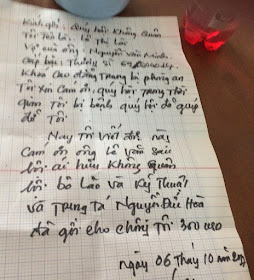 Kính gởi: quý hội Không Quân
Tôi tên là: Lê Thị Lài
Vợ của ông: Nguyễn Văn Minh.
Cấp bậc: Thượng sĩ
Khoa Cao đẳng Trang bị phòng an
Tôi xin Cám ơn quý hội trong thời
gian Tôi bị bệnh quý hội đã giúp
đỡ Tôi
Nay Tôi viết đơn này
Cám ơn ông Lê Văn Sáu
hội ái hữu Không Quân
hội bô lão và Kỹ Thuật
Và Trung Tá Nguyễn Đức Hoà
đã gởi cho chồng Tôi 300 USD
ngày 06 Tháng 10 năm